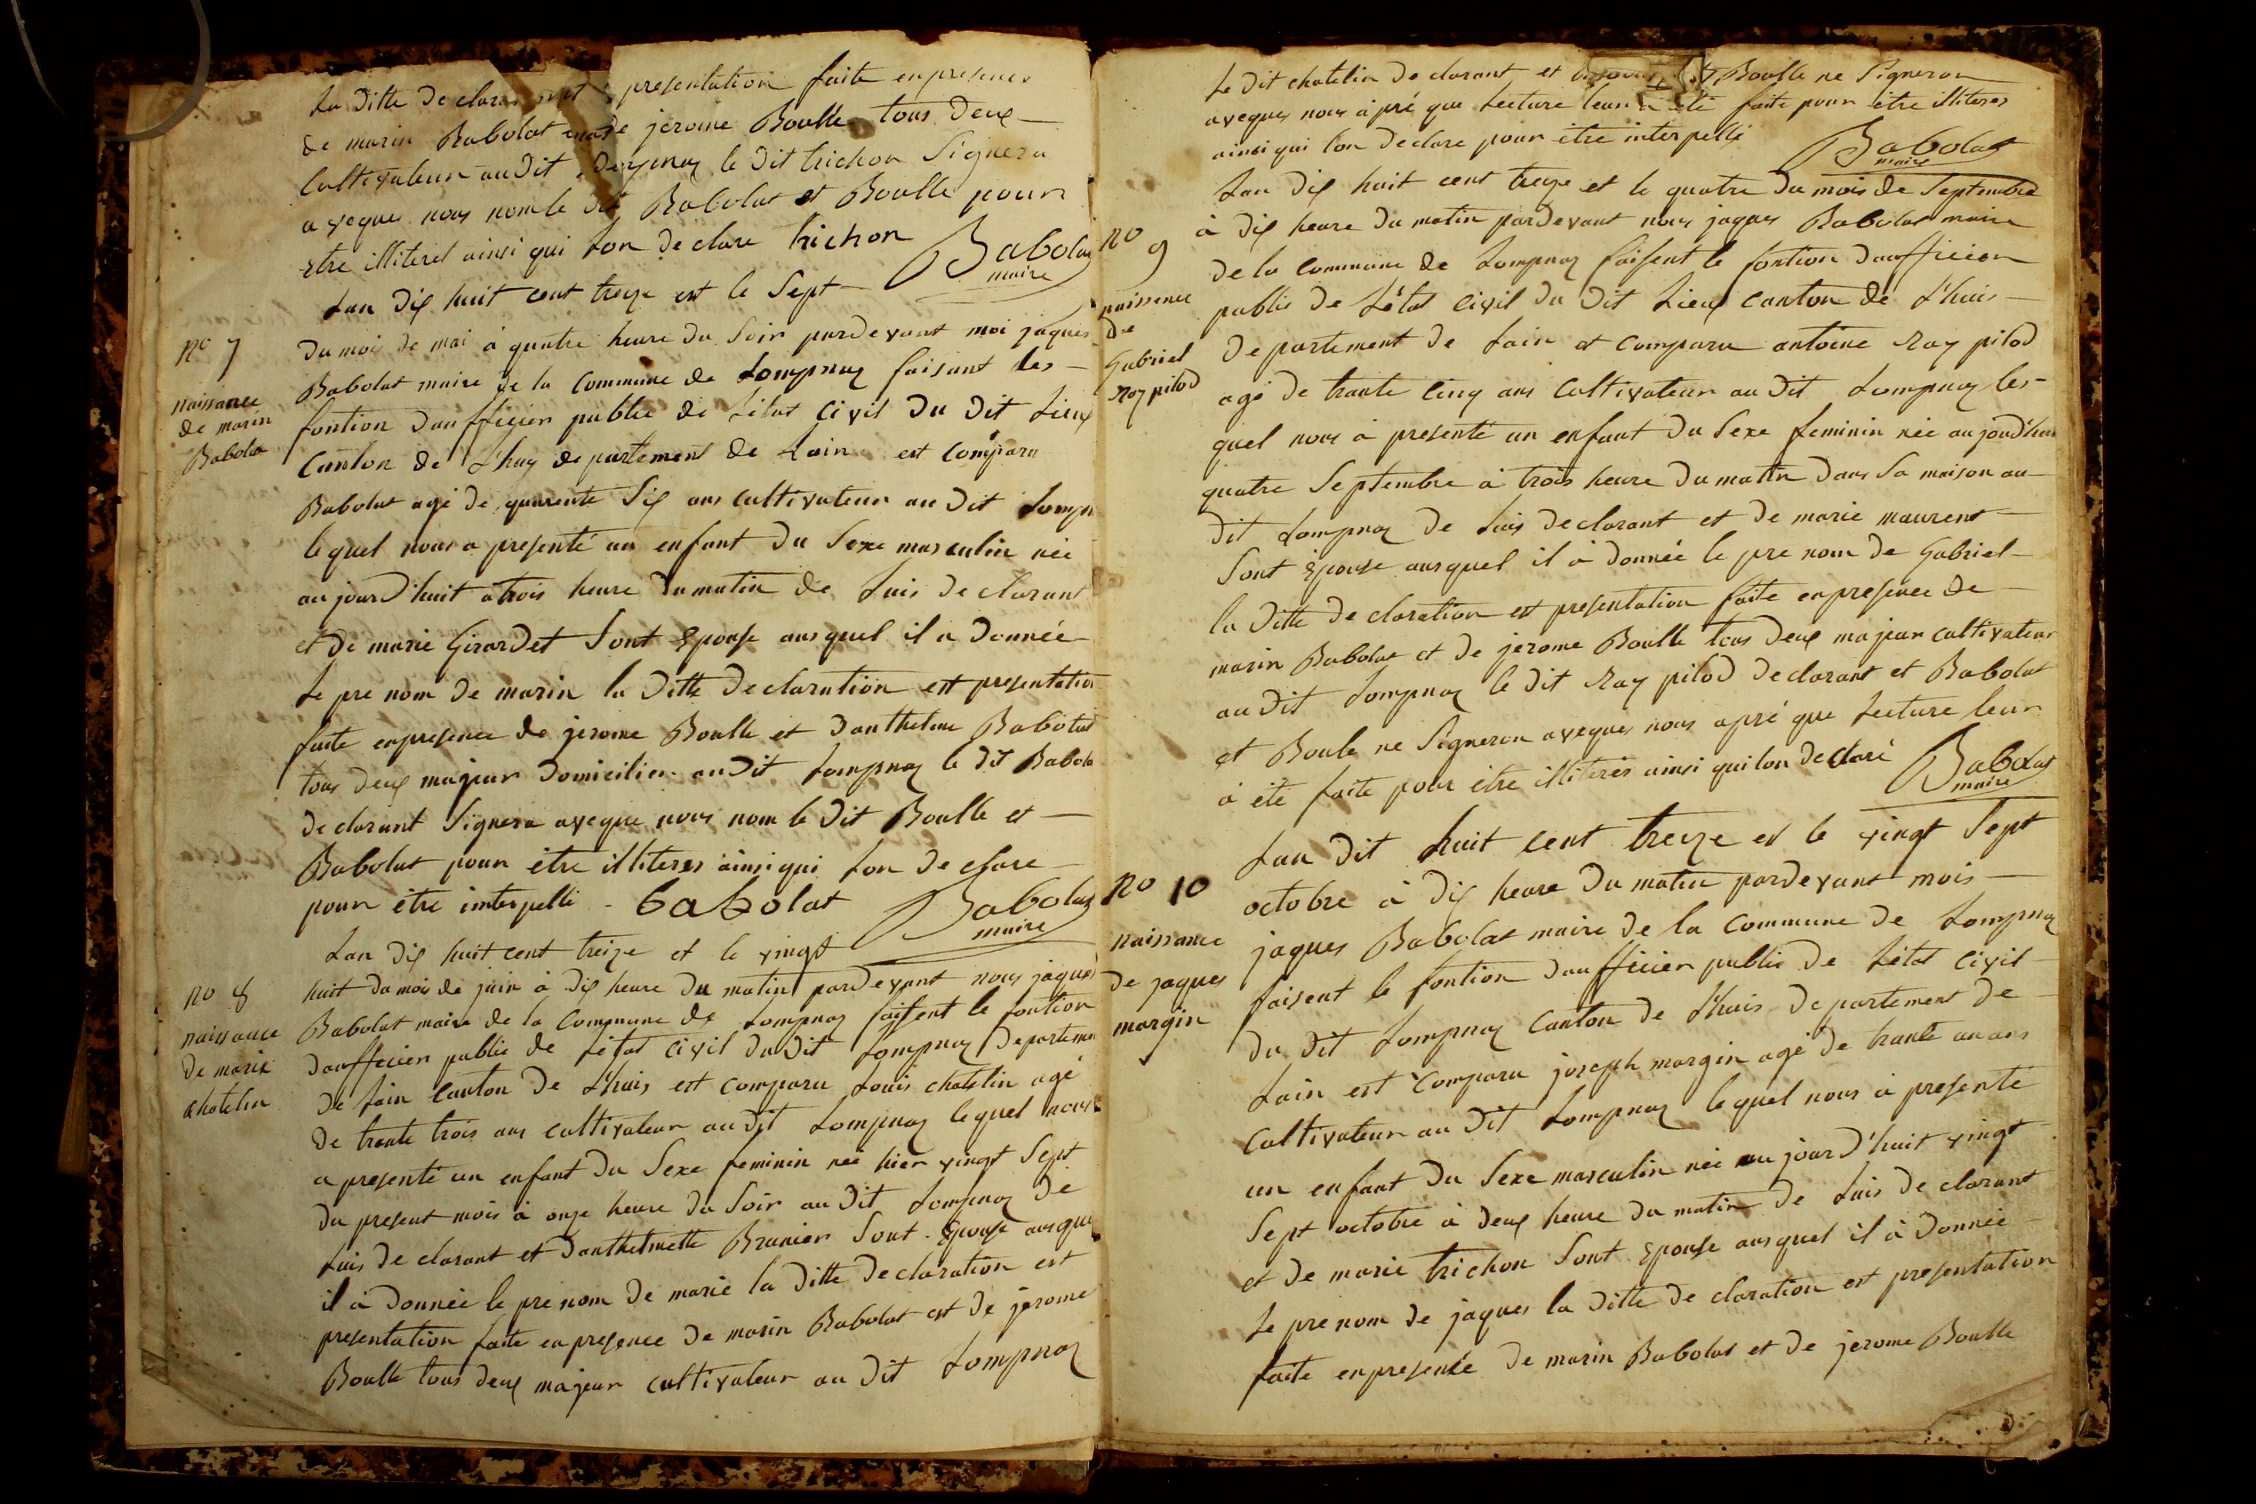 La ditte declara presentation faite enpresence
de marin Babolat de jerome Boulle tous deux
Cultivateur au dit le dit trichon Signera
aveques nous nom le dit Babolat et Boulle pour
etre illiteres ainsi qui lon declare trichon Babolat
maire
Lan dix huit cent treize est le Sept
no 7
du mois de mai à quatre heure du Soir pardevant moi jaques
Babolat maire de la Commune de Lompnaz faisant les
naissance
de marin
Babola
fontion daufficier public de Létat Civil du dit Lieux
Canton de Lhuy departement de Lain est Comparu
Babolat agé de quarente Six ans cultivateur au dit Lompn
lequel nous a presenté un enfant du Sexe masculin née
au jourdhuit à trois heure du matin de Luis declarant
et de marie Girardet Sont Epouse ausquel il a donnée
Le pre nom de marin la ditte declaration est presentation
faite enpresence de jerome Boulle et danthelme Babolat
tous deux majeur domicilier au dit Lompnaz le dit Babola
declarant Signera aveque nous nom le dit Boulle et
Babolat pour être illiteres ainsi qui lon declare
pour être interpellé - babolat Babolat
maire
Lan dix huit cent treize et le vingt
no 8
naissance
de marie
chatelin
huit du mois de juin à dix heure du matin pardevant nous jaques
Babolat maire de la Commune de Lompnaz faisent le fontion
daufficier public de Létat civil du dit Lompnaz departemen
de Lain Canton de Lhuis est comparu Louis chatelin agé
de trante trois ans cultivateur au dit Lompnaz lequel nous
a presenté un enfant du Sexe feminin née hier vingt Sept
du present mois à onze heure du Soir au dit Lompnaz de
Luis declarant et danthelmette Brunier Sont Epouse ausque
il à donnée le pre nom de marie la ditte declaration est
presentation faite enpresence de marin Babolat est de jerome
Boulle tous deux majeur cultivateur au dit Lompnaz
Le dit chatelin declarant et Boulle ne Signeron
aveques nous àpré que Lecture leur à été faite pour etre illiteres
ainsi qui lon declare pour être interpellé Babolat
maire
Lan dix huit cent treize et le quatre du mois de Septembre
no 9
naissence
de
Gabriel
Ray pilod
à dix heure du matin pardevant nous jaques Babolat maire
de la commune de Lompnaz faisent le fontion daufficier
public de Létat civil du dit Lieux canton de Lhuis
departement de Lain et comparu antoine Ray pilod
agé de trante cinq ans cultivateur au dit Lompnaz les
quel nous à presenté un enfant du Sexe feminin née aujourdhui
quatre Septembre à trois heure du matin dans Sa maison au
dit Lompnaz de Luis declarant et de marie maurent
Sont Epouse ausquel il à donnée le pre nom de Gabriel
la ditte declaration est presentation faite enpresence de
marin Babolat et de jerome Boulle tous deux majeur cultivateur
au dit Lompnaz le dit Ray pilod declarant et Babolat
et Boule ne Signeron aveques nous apré que Lecture leur
à été faite pour être illiteres ainsi qui lon declaré Babolat
maire
Lan dit huit cent treize et le vingt Sept
no 10
naissance
de jaques
margin
octobre à dix heure du matin pardevant mois
jaques Babolat maire de la commune de Lompnaz
faisent le fontion daufficier public de Létat civil
du dit Lompnaz Canton de Lhuis departement de
Lain est Comparu joseph margin agé de trante un ans
Cultivateur au dit Lompnaz lequel nous à presenté
un enfant du Sexe masculin née au jourd'huit vingt
Sept octobre à deux heure du matin de Luis declarant
et de marie trichon Sont Epouse ausquel il à donnée
Le pre nom de jaques la ditte declaration est presentation
faite enpresence de marin Babolat et de jerome Boulle